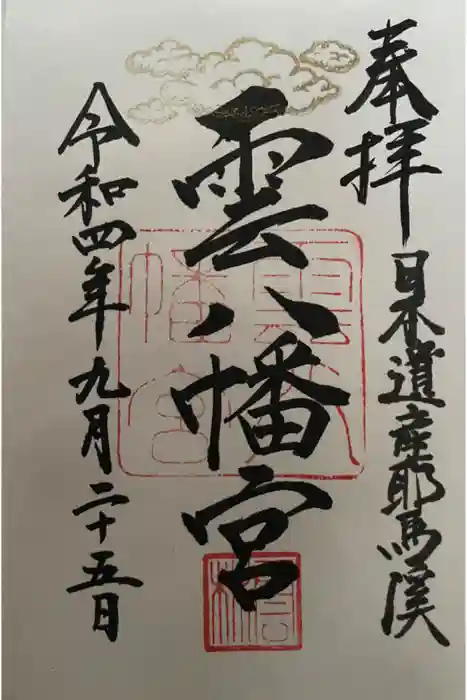 奉拝
日本遺産耶馬溪
雲八幡宮
雲八幡宮
令和四年九月二十五日